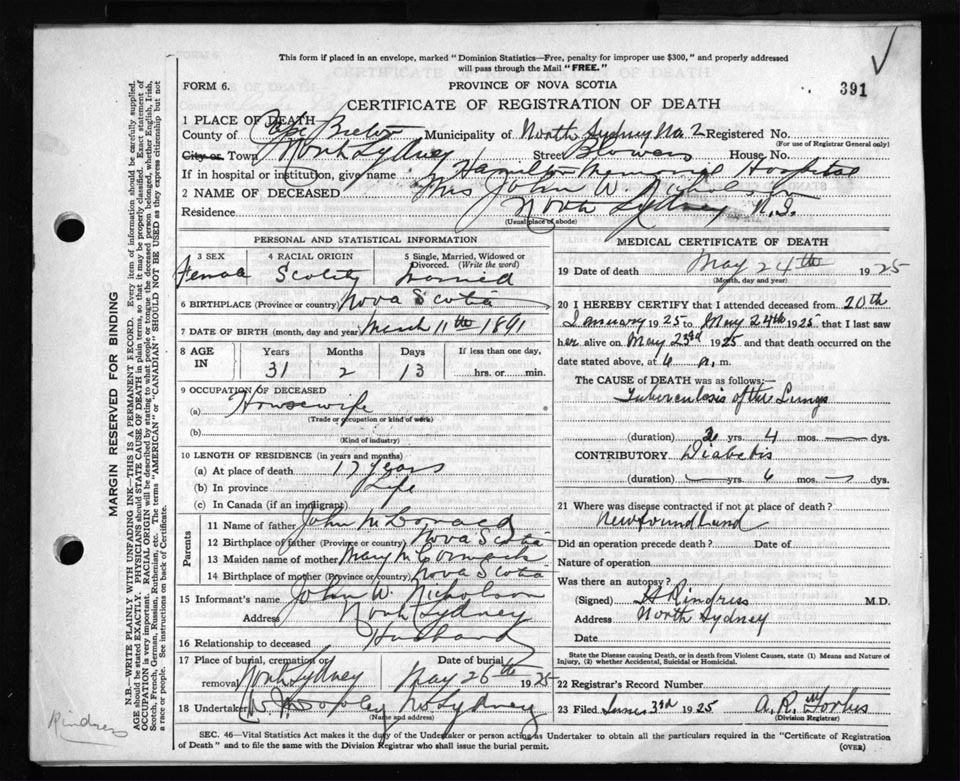 This form if placed in an envelope, marked "Dominion Statistics—Free, penalty for improper use $300," and properly addressed
will pass through the Mail "FREE."
FORM 6.
PROVINCE OF NOVA SCOTIA
391
CERTIFICATE OF REGISTRATION OF DEATH
1 PLACE OF DEATH
County of Cape Breton Municipality of North Sydney No. 2 Registered No.
(For use of Registrar General only)
City or Town North Sydney Street Blowers House No.
If in hospital or institution, give name Hamilton Memorial Hospital
2 NAME OF DECEASED Mrs John W. Nicholson
Residence North Sydney N.S.
(Usual place of abode)
PERSONAL AND STATISTICAL INFORMATION
3 SEX
4 RACIAL ORIGIN
5 Single, Married, Widowed or Divorced. (Write the word)
Female
Married
6 BIRTHPLACE (Province or country) Nova Scotia
7 DATE OF BIRTH (month, day and year) March 11th
8 AGE IN
Years
Months
Days
If less than one day,
31
2
13
hrs. or min.
9 OCCUPATION OF DECEASED
(a) Housewife
(Trade or occupation or kind of work)
(b)
(Kind of industry)
10 LENGTH OF RESIDENCE (in years and months)
(a) At place of death 17 years
(b) In province Life
(c) In Canada (if an immigrant)
Parents
11 Name of father John McDonald
12 Birthplace of father (Province or country) Nova Scotia
13 Maiden name of mother Mary McCormack
14 Birthplace of mother (Province or country) Nova Scotia
15 Informant's name John W. Nicholson
Address North Sydney
16 Relationship to deceased Husband
17 Place of burial, cremation or removal North Sydney
Date of burial May 26th 1925
18 Undertaker No Sydney
(Name and address)
MEDICAL CERTIFICATE OF DEATH
19 Date of death May 24th 1925
(Month, day and year)
20 I HEREBY CERTIFY that I attended deceased from 20th
January 1925 to May 24th 1925 that I last saw
her alive on May 23rd 1925 and that death occurred on the
date stated above, at 6 a. m.
The CAUSE of DEATH was as follows:
Tuberculosis of the Lungs
(duration) yrs. 4 mos. — dys.
CONTRIBUTORY Diabetis
(duration) — yrs. 6 mos. — dys.
21 Where was disease contracted if not at place of death?
Newfoundland
Did an operation precede death? Date of
Nature of operation
Was there an autopsy?
(Signed) M.D.
Address North Sydney
Date
State the Disease causing Death, or in death from Violent Causes, state (1) Means and Nature of
Injury, (2) whether Accidental, Suicidal or Homicidal.
22 Registrar's Record Number
23 Filed June 3rd 1925 A. R. Forbes
(Division Registrar)
SEC. 46—Vital Statistics Act makes it the duty of the Undertaker or person acting as Undertaker to obtain all the particulars required in the "Certificate of Registration
of Death" and to file the same with the Division Registrar who shall issue the burial permit.
(OVER)
MARGIN RESERVED FOR BINDING
N.B.—WRITE PLAINLY WITH UNFADING INK—THIS IS A PERMANENT RECORD. Every item of information should be carefully supplied.
AGE should be stated EXACTLY. PHYSICIANS should STATE CAUSE OF DEATH in plain terms, so that it may be properly classified. Exact statement of
OCCUPATION is very important. RACIAL ORIGIN will be described by stating to what people or tongue the deceased person belonged, whether English, Irish,
Scotch, French, German, Russian, Ruthenian, etc. The terms "AMERICAN" or "CANADIAN" SHOULD NOT BE USED as they express citizenship but not
a race or people. See instructions on back of Certificate.